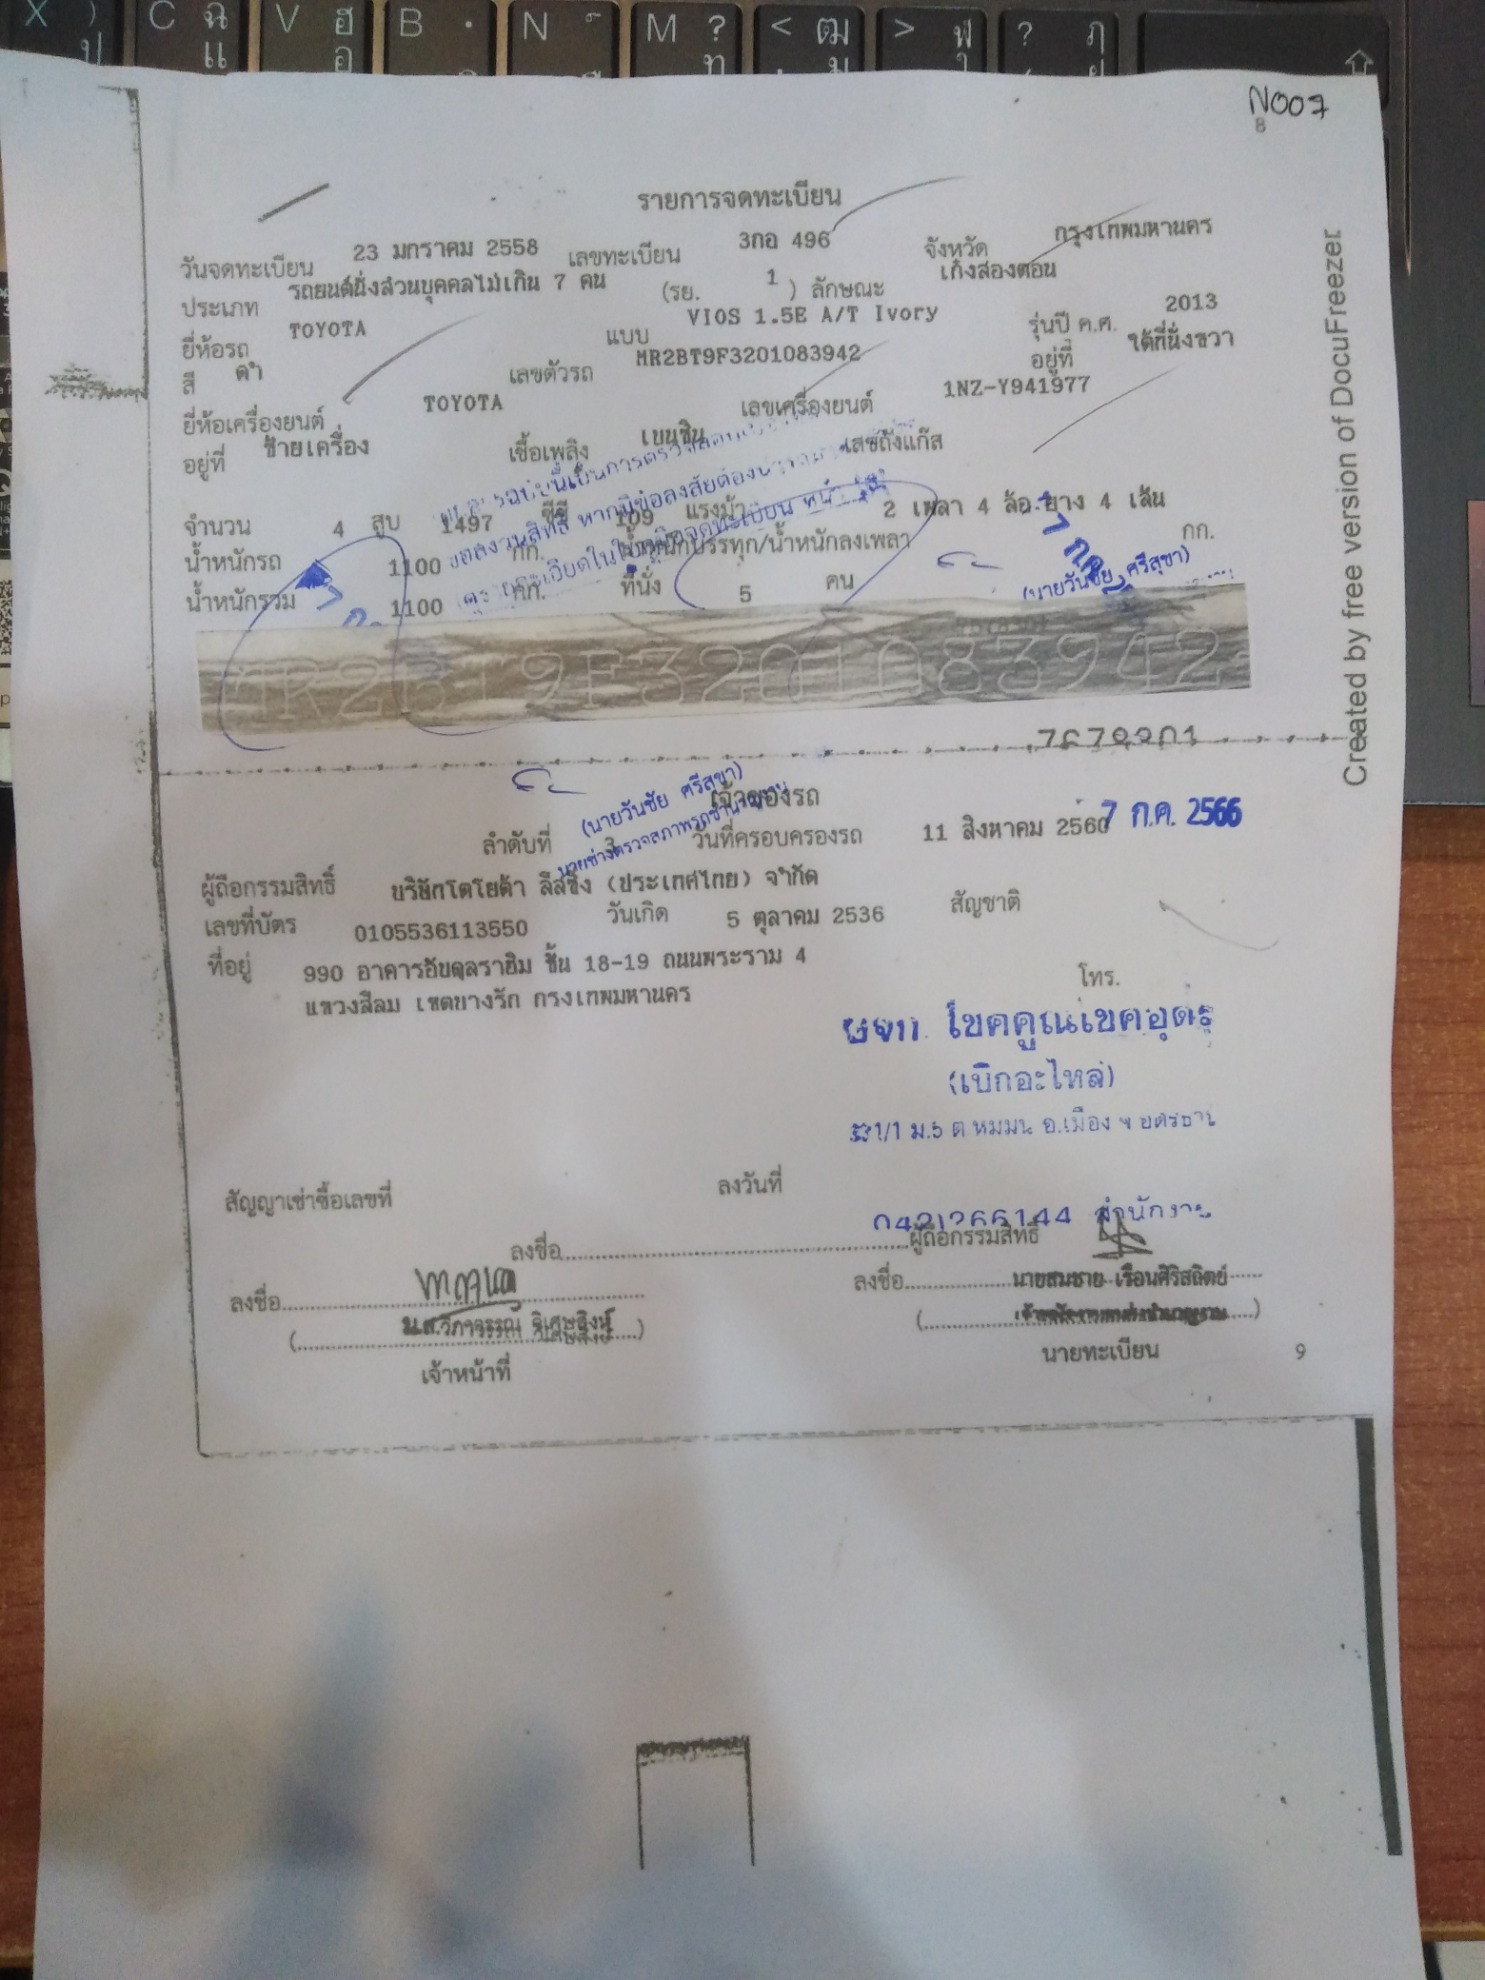 N007
8
รายการจดทะเบียน
วันจดทะเบียน 23 มกราคม 2558 เลขทะเบียน 3กอ 496 จังหวัด กรุงเทพมหานคร
ประเภท รถยนต์นั่งส่วนบุคคลไม่เกิน 7 คน (รย. 1 ) ลักษณะ เก๋งสองตอน
ยี่ห้อรถ TOYOTA แบบ VIOS 1.5E A/T Ivory รุ่นปี ค.ศ. 2013
สี ดำ เลขตัวรถ MR2BT9F3201083942 อยู่ที่ ใต้ที่นั่งขวา
ยี่ห้อเครื่องยนต์ TOYOTA เลขเครื่องยนต์ 1NZ-Y941977
อยู่ที่ ซ้ายเครื่อง เชื้อเพลิง เบนซิน เลขถังแก๊ส
จำนวน 4 สูบ 1497 ซีซี 109 แรงม้า 2 เพลา 4 ล้อ ยาง 4 เส้น
น้ำหนักรถ 1100 กก. น้ำหนักบรรทุก/น้ำหนักลงเพลา กก.
น้ำหนักรวม 1100 กก. ที่นั่ง 5 คน
ขอสงวนสิทธิ์ หากมีข้อสงสัยต้อง
(นายวันชัย ศรีสุขา)
MR2BT9F3201083942
เจ้าของรถ
(นายวันชัย ศรีสุขา)
นายช่างตรวจสภาพรถชำนาญงาน
7 ก.ค. 2566
ลำดับที่ 3 วันที่ครอบครองรถ 11 สิงหาคม 2560
ผู้ถือกรรมสิทธิ์ บริษัทโตโยต้า ลีสซิ่ง (ประเทศไทย) จำกัด
เลขที่บัตร 0105536113550 วันเกิด 5 ตุลาคม 2536 สัญชาติ
ที่อยู่ 990 อาคารอับดุลราฮิม ชั้น 18-19 ถนนพระราม 4
แขวงสีลม เขตบางรัก กรุงเทพมหานคร
โทร.
หจก. โชคคูณโชคอุดร
(เบิกอะไหล่)
สัญญาเช่าซื้อเลขที่ ลงวันที่
0421266144 สำนักงาน
ลงชื่อ ผู้ถือกรรมสิทธิ์
ลงชื่อ ลงชื่อ นายสมชาย เรือนศิริสถิตย์
น.ส.วิภาวรรณ์ วิเศษสิงห์
เจ้าหน้าที่ นายทะเบียน
9
Created by free version of DocuFreezer